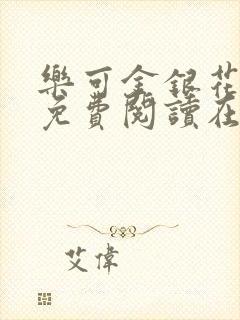 樂可金銀花
免費閱讀在
艾偉